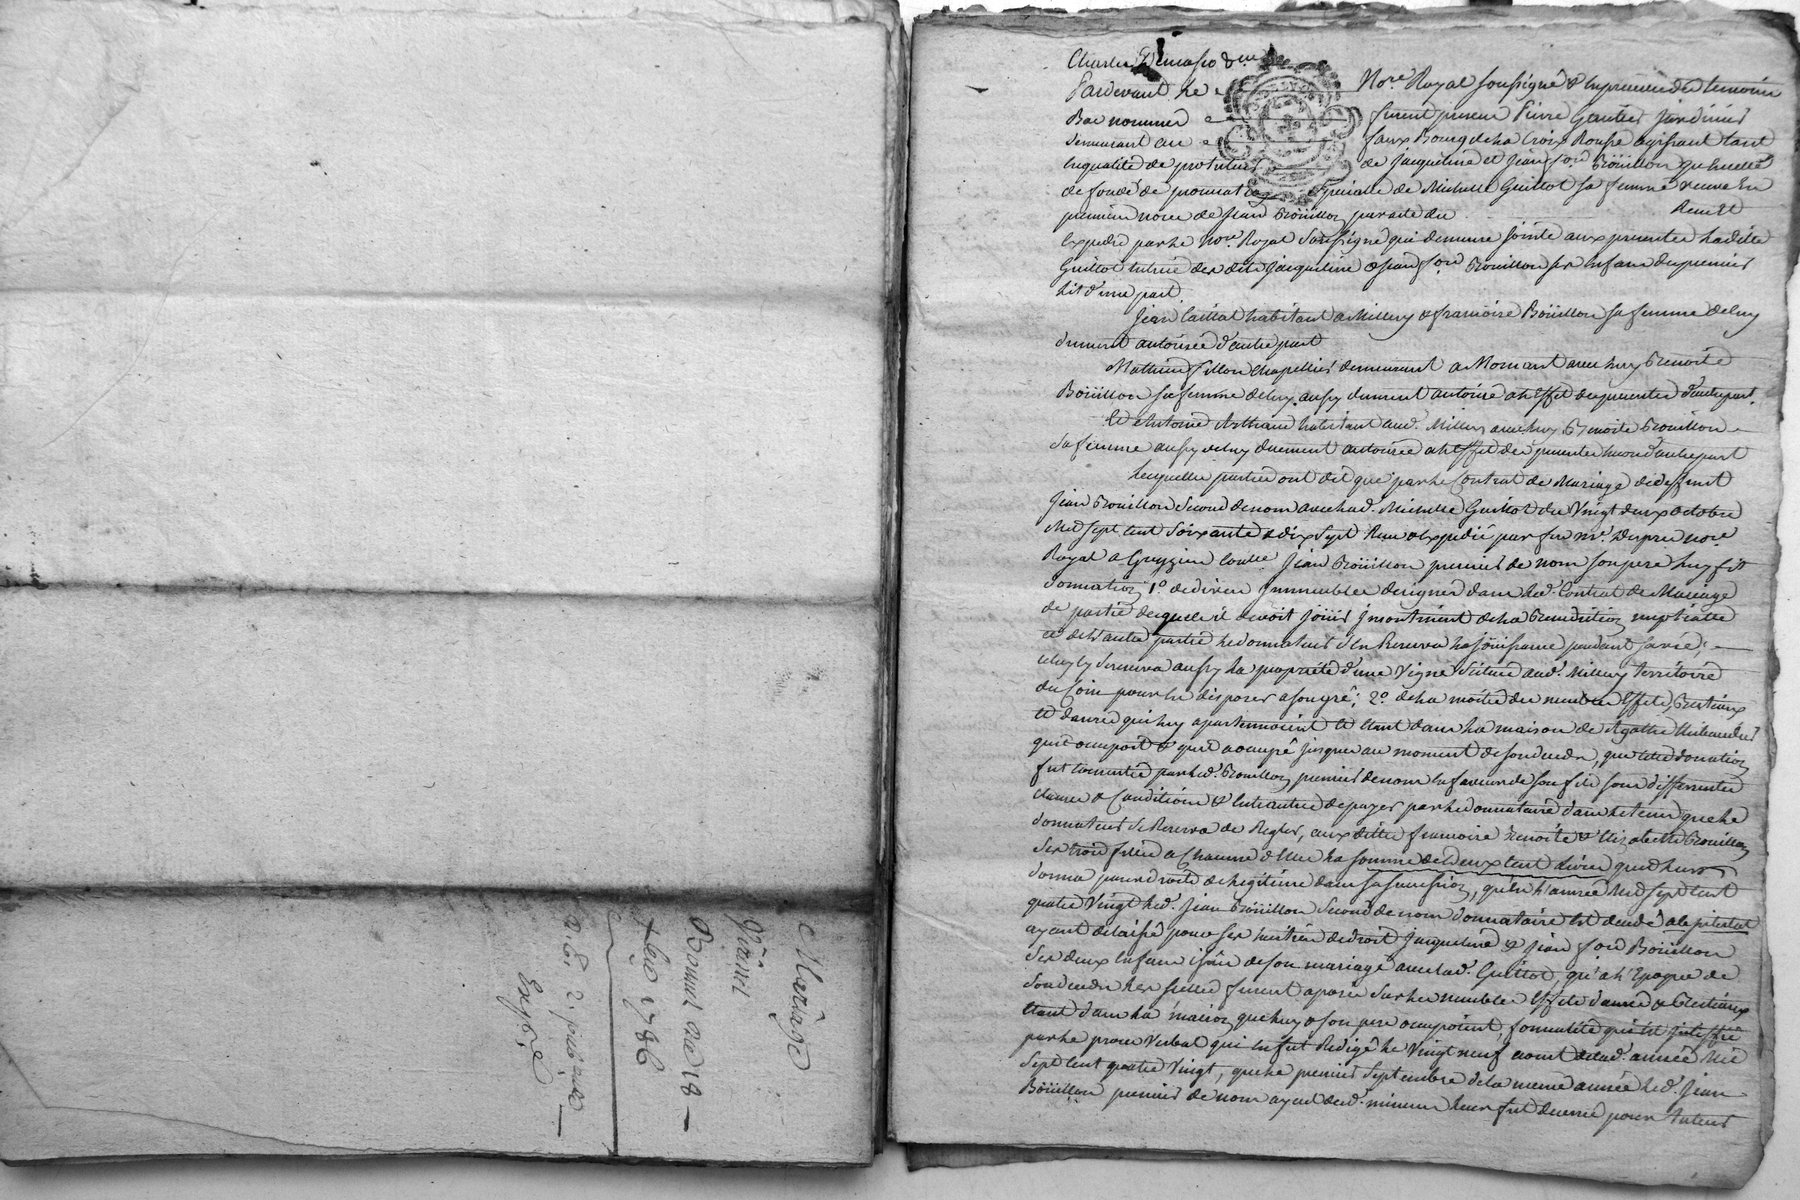 Mariage
Vianis
Bonnel
1786
Expé
Pardevant le No.re Royal soussigné & en présence des témoins
Bas nommés furent presens Pierre Gautier Jardinier
demeurant au faux Bourg de la Croix Rousse agissant tant
En qualité de protuteur de Jacqueline et Jean fois Boüillon qu'en celle
de fondé de procuration speciale de Michelle Guillot sa femme veuve En
premieres noces de Jean Boüillon par acte du Recu Et
Expedié par le No.re Royal soussigné qui demeure jointe aux presentes ladite
Guillot tutrice des dits Jacqueline & Jean fois Boüillon ses Enfans du premier
lit d'une part
Jean habitant a Millery & françoise Boüillon sa femme de luy
dument autorisée d'autre part
Mathieu fillon chapellier demeurant a Mornant avec luy Benoite
Boüillon sa femme de luy aussy dument autorisée a l'Effet des presentes d'autre part.
Et Antoine habitant aud. Millery avec luy Benoite Boüillon
sa femme aussy de luy duement autorisée a l'Effet des presentes encore d'autre part
Lesquelles parties ont dit que par le Contrat de Mariage de deffunt
Jean Boüillon second de nom avec lad. Michelle Guillot du Vingt deux octobre
Mil sept cent soixante & dix sept Recu & Expedié par feu Me. Dupré no.re
Royal a Grezieu Jean Boüillon premier de nom son pere luy fit
donnation 1° de divers Immeubles designés dans led. Contrat de Mariage
de partie desquels il devoit joüir Incontinent de la Benediction nuptialle
et de l'autre partie le donnateur s'En Reserva la joüissance pendant sa vie;
celuy cy se reserva aussy la propriété d'une Vigne Située aud. Millery territoire
du Coin pour En disposer a son gré; 2° de la moitié des meubles Effets, Bestiaux
et danrées qui luy apartennoient et étant dans la maison de Agathe
qu'il occupoit & qu'il a occupé jusques au moment de son deces, que cette donation
fut consentie par led. Boüillon premier de nom En faveur de son fils sous differentes
clauses & Conditions & Entre autres de payer par le donnataire dans le tems que le
donnateur se Reserva de Regler, aux dittes françoise Benoite & Elizabeth Boüillon
ses trois filles a Chacune d'Elle la somme de deux cent livres qu'il leurs
donna pour droits de legitime dans sa succession, qu'En l'année Mil sept cent
quatre Vingt led. Jean Boüillon second de nom donnataire Est decedé ab intestat
ayant delaissé pour ses heritiers de droit Jacqueline & Jean fois Boüillon
ses deux Enfans issûs de son mariage avec lad. Guillot, qu'a l'Epoque de
son deces les scellés furent aposés sur les meubles Effets danrées & Bestiaux
étant dans la maison que luy & son pere occupoient, formalité qui Est justiffiée
par le proces Verbal qui En fut Redigé le Vingt neuf aoust de lad. année Mil
Sept cent quatre Vingt, que le premier Septembre de la meme année led. Jean
Boüillon premier de nom ayeul desd. mineurs leur fut decerné pour tuteur